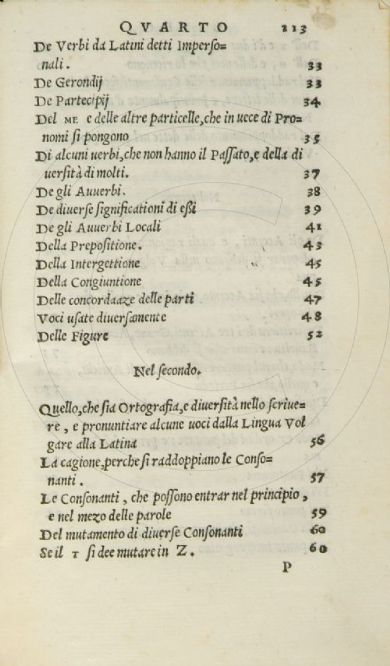 QVARTO 213
De Verbi da Latini detti Imperſo=
nali. 33
De Gerondij 33
De Partecipij 34
Del ME e delle altre particelle, che in uece di Pro=
nomi ſi pongono 35
Di alcuni uerbi, che non hanno il Paſſato, e della di
uerſità di molti. 37
De gli Auuerbi. 38
De diuerſe ſignificationi di eßi 39
De gli Auuerbi Locali 41
Della Prepoſitione. 43
Della Intergettione 45
Della Congiuntione 45
Delle concordaaze delle parti 47
Voci uſate diuerſamente 48
Delle Figure 52
Nel ſecondo.
Quello, che ſia Ortografia, e diuerſità nello ſcriue=
re, e pronuntiare alcune uoci dalla Lingua Vol
gare alla Latina 56
La cagione, perche ſi raddoppiano le Conſo=
nanti. 57
Le Conſonanti, che poſſono entrar nel principio,
e nel mezo delle parole 59
Del mutamento di diuerſe Conſonanti 60
Se il T ſi dee mutare in Z. 60
P